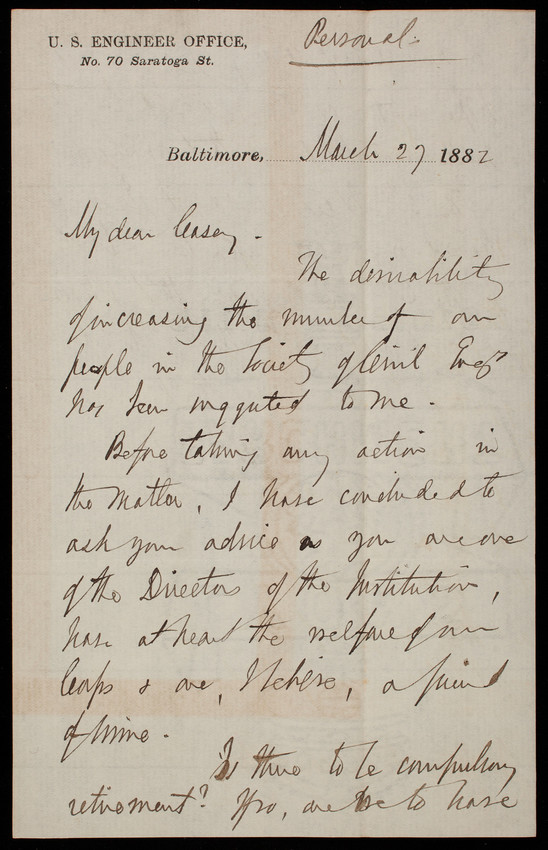 U. S. ENGINEER OFFICE,
No. 70 Saratoga St.
Personal.
Baltimore, March 27 1882
My dear Casey -
The desirability
of increasing the number of our
people in the Society of Civil Engrs
has been suggested to me -
Before taking any action in
the matter, I have concluded to
ask your advice as you are one
of the Directors of the Institution,
have at heart the welfare of our
Corps & are, I believe, a friend
of mine.
Is there to be compulsory
retirement? If so, are we to have